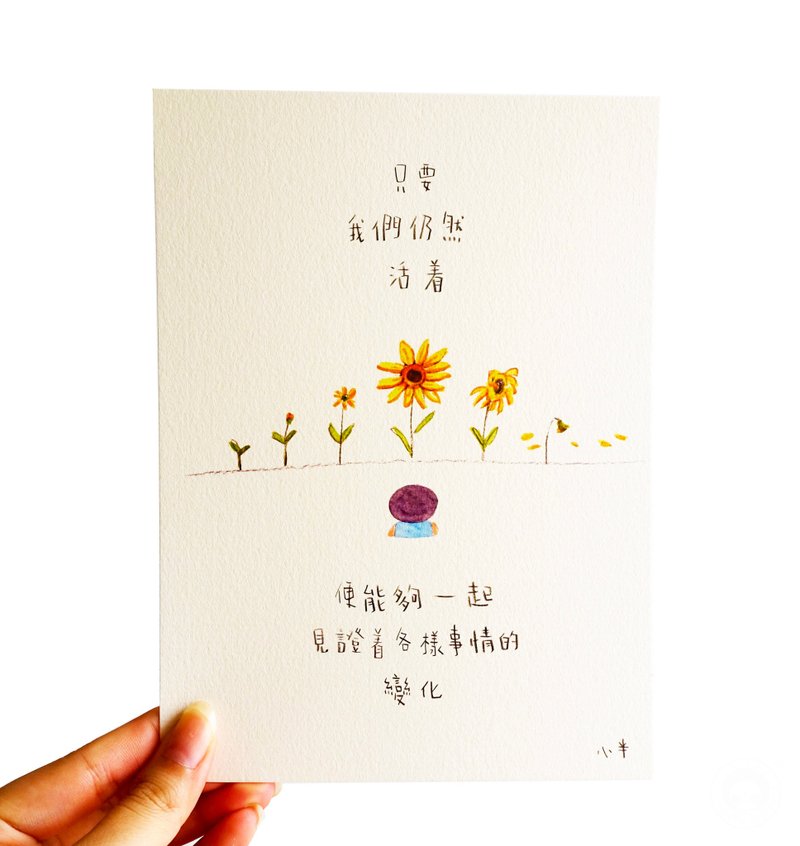 只要
我們仍然
活着
便能夠一起
見證着各樣事情的
變化
小半